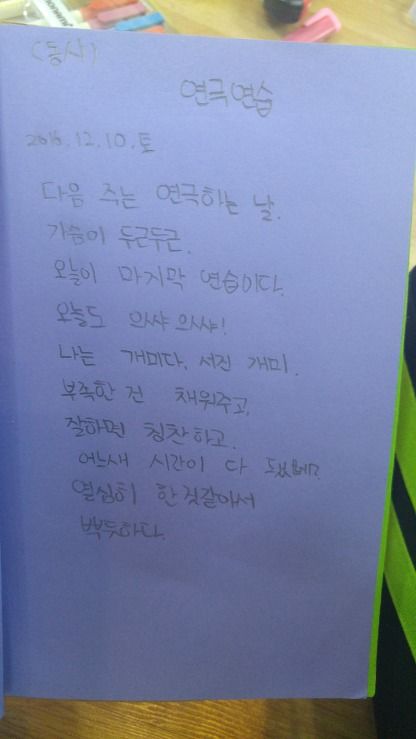 (동시)
연극 연습
2016.12.10.토
다음 주는 연극하는 날.
가슴이 두근두근.
오늘이 마지막 연습이다.
오늘도 으쌰으쌰!
나는 개미다, 서진 개미.
부족한 건 채워주고,
잘하면 칭찬하고.
어느새 시간이 다 됐네?
열심히 한 것같아서
뿌듯하다.